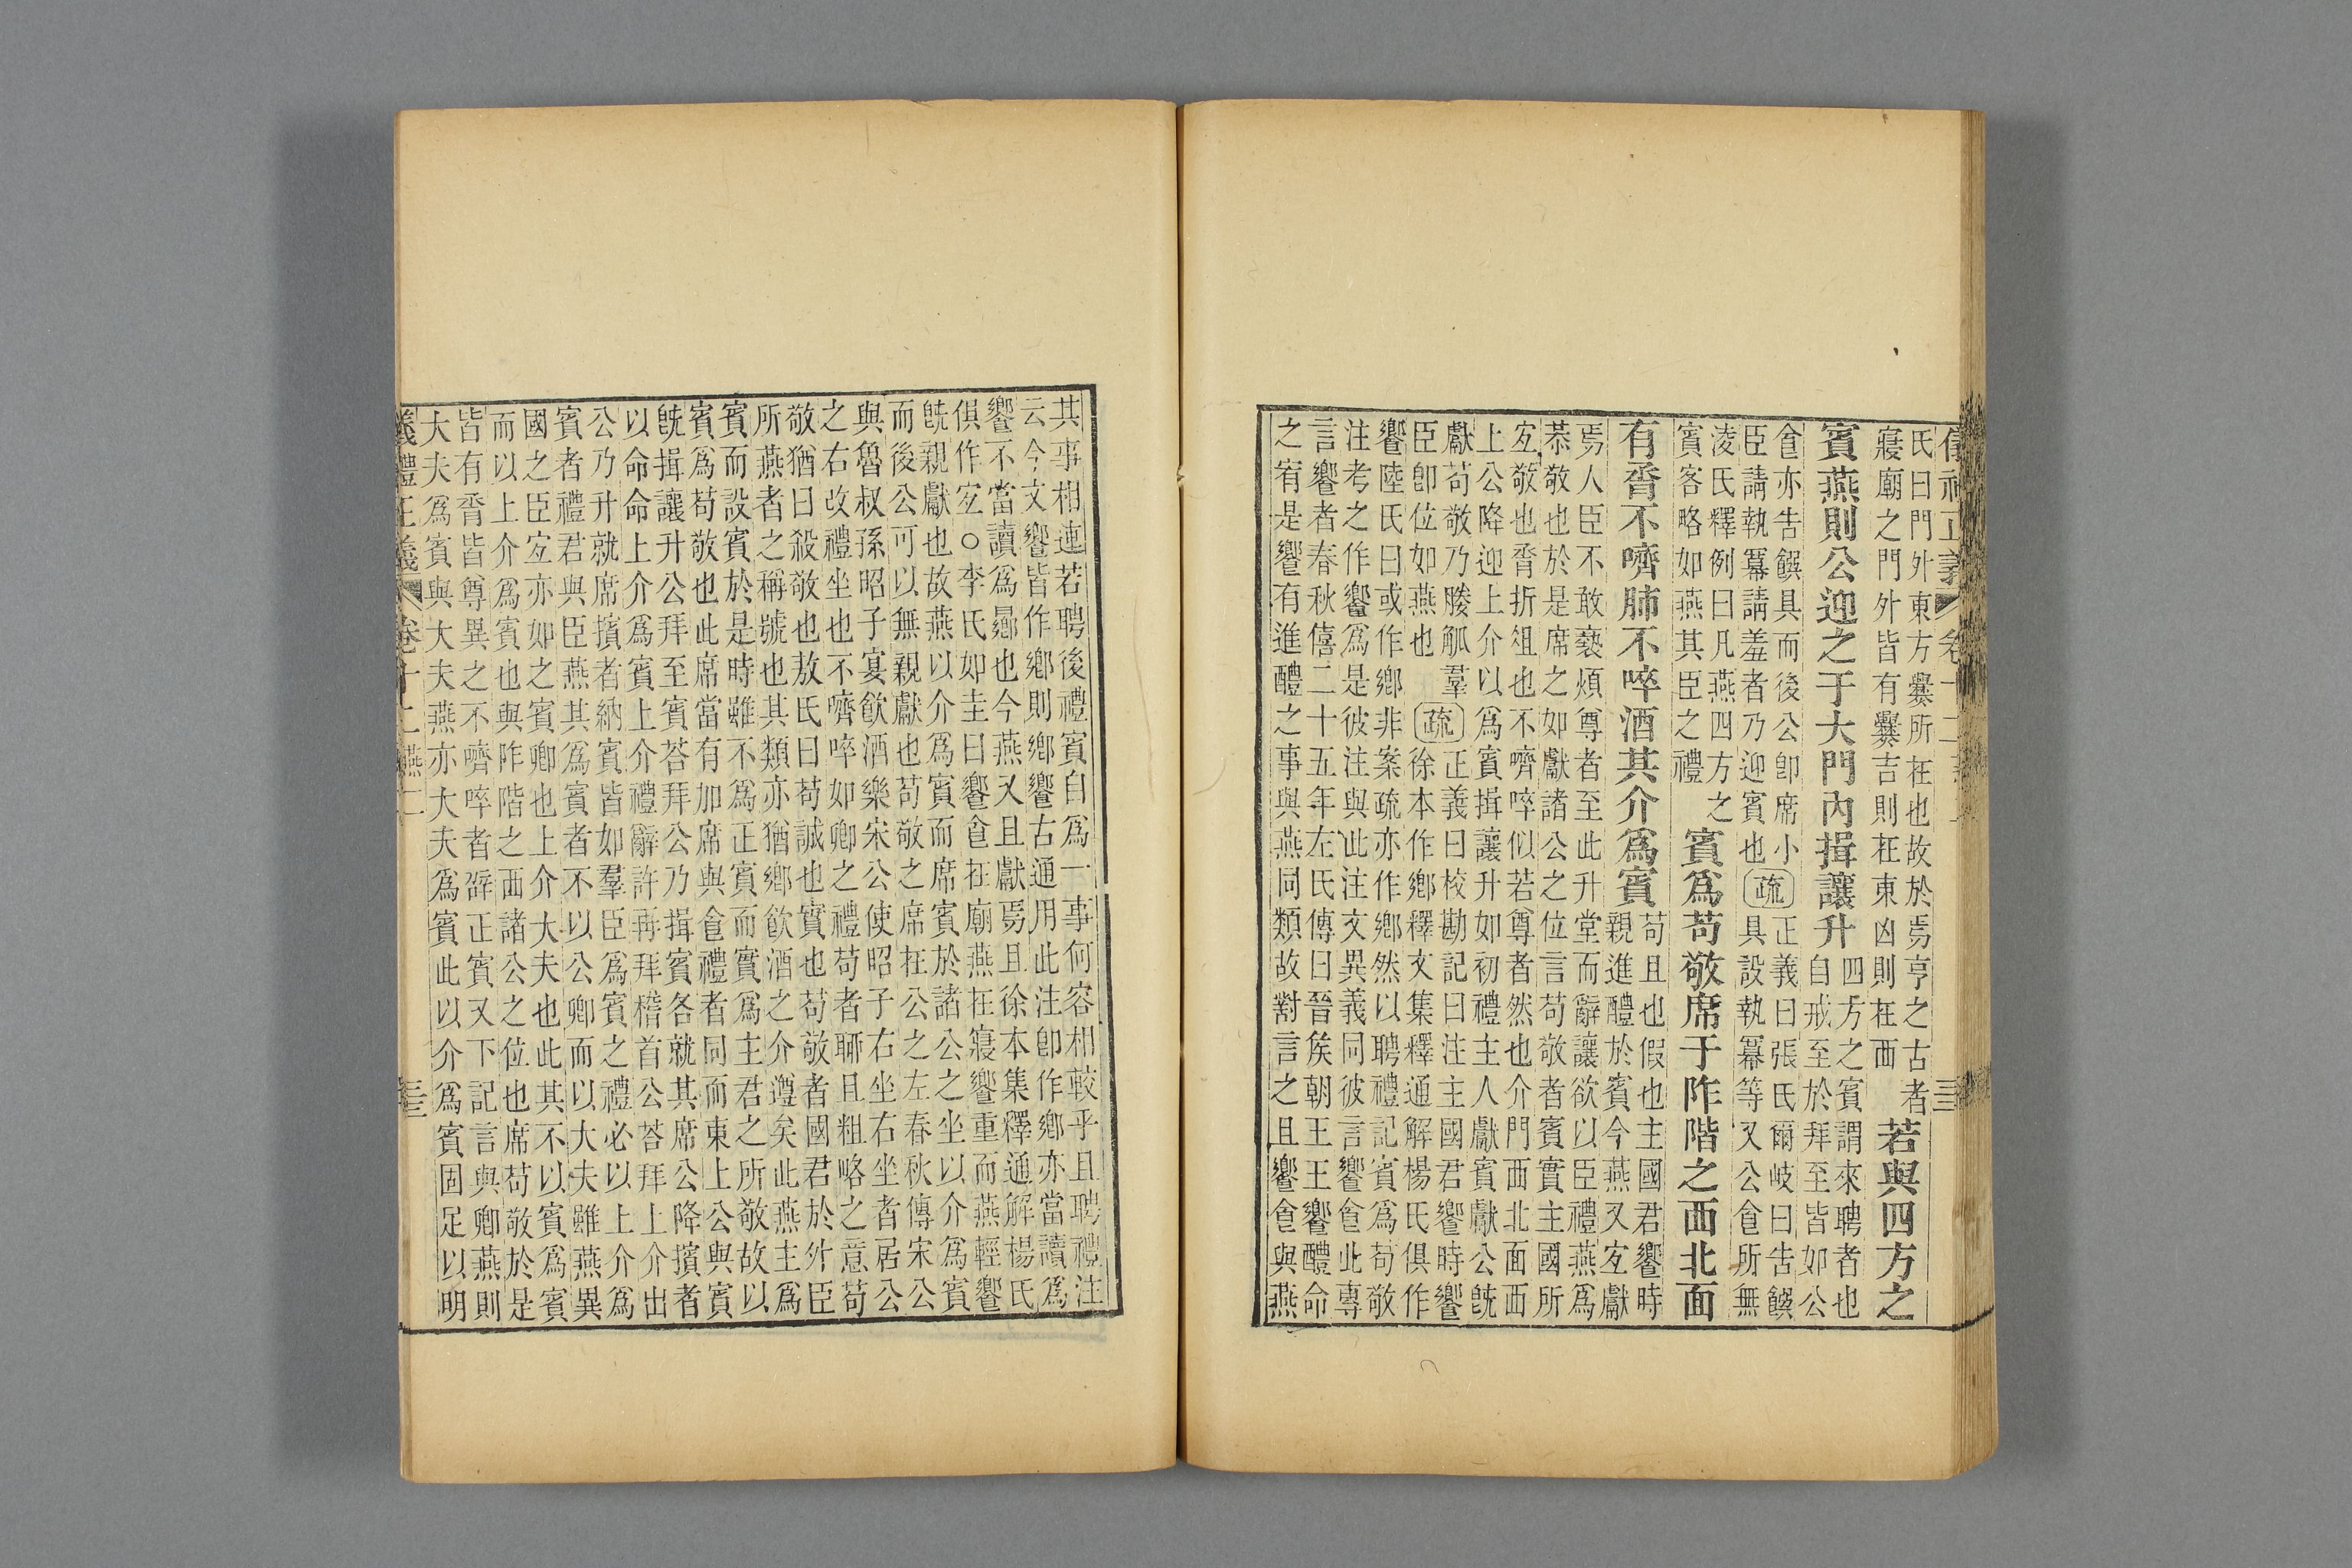 氏曰門外東方爨所在也故於焉亨之古者
寢廟之門外皆有爨吉則在東凶則在西
若與四方之
賓燕則公迎之于大門內揖讓升
四方之賓謂來聘者也
自戒至於拜至皆如公
食亦告饌具而後公卽席小
臣請執冪請羞者乃迎賓也
疏
正義曰張氏爾岐曰告饌
具設執冪等又公食所無
淩氏釋例曰凡燕四方之
賓客略如燕其臣之禮
賓爲苟敬席于阼階之西北面
有脀不嚌肺不啐酒其介爲賓
苟且也假也主國君饗時
親進醴於賓今燕又宐獻
焉人臣不敢褻煩尊者至此升堂而辭讓欲以臣禮燕爲
恭敬也於是席之如獻諸公之位言苟敬者賓實主國所
宐敬也脀折俎也不嚌啐似若尊者然也介門西北面西
上公降迎上介以爲賓揖讓升如初禮主人獻賓獻公旣
獻苟敬乃媵觚羣
臣卽位如燕也
疏
正義曰校勘記曰注主國君饗時饗
徐本作鄉釋文集釋通解楊氏俱作
饗陸氏曰或作鄉非案疏亦作鄉然以聘禮記賓爲苟敬
注考之作饗爲是彼注與此注文異義同彼言饗食此專
言饗者春秋僖二十五年左氏傳曰晉矦朝王王饗醴命
之宥是饗有進醴之事與燕同類故對言之且饗食與燕
其事相連若聘後禮賓自爲一事何容相較乎且聘禮注
云今文饗皆作鄉則鄉饗古通用此注卽作鄉亦當讀爲
饗不當讀爲曏也今燕又且獻焉且徐本集釋通解楊氏
俱作宐○李氏如圭曰饗食在廟燕在寢饗重而燕輕饗
旣親獻也故燕以介爲賓而席賓於諸公之坐以介爲賓
而後公可以無親獻也苟敬之席在公之左春秋傳宋公
與魯叔孫昭子宴飮酒樂宋公使昭子右坐右坐者居公
之右改禮坐也不嚌啐如卿之禮苟者聊且粗略之意苟
敬猶曰殺敬也敖氏曰苟誠也實也苟敬者國君於外臣
所燕者之稱號也其類亦猶鄉飮酒之介遵矣此燕主爲
賓而設賓於是時雖不爲正賓而實爲主君之所敬故以
賓爲苟敬也此席當有加席與食禮者同而東上公與賓
旣揖讓升公拜至賓荅拜公乃揖賓各就其席公降擯者
以命命上介爲賓上介禮辭許再拜稽首公荅拜上介出
公乃升就席擯者納賓皆如羣臣爲賓之禮必以上介爲
賓者禮君與臣燕其爲賓者不以公卿而以大夫雖燕異
國之臣宐亦如之賓卿也上介大夫也此其不以賓爲賓
而以上介爲賓也與阼階之西諸公之位也席苟敬於是
皆有脀皆尊異之不嚌啐者辟正賓又下記言與卿燕則
大夫爲賓與大夫燕亦大夫爲賓此以介爲賓固足以明
義禮正義
卷十二燕二
三三